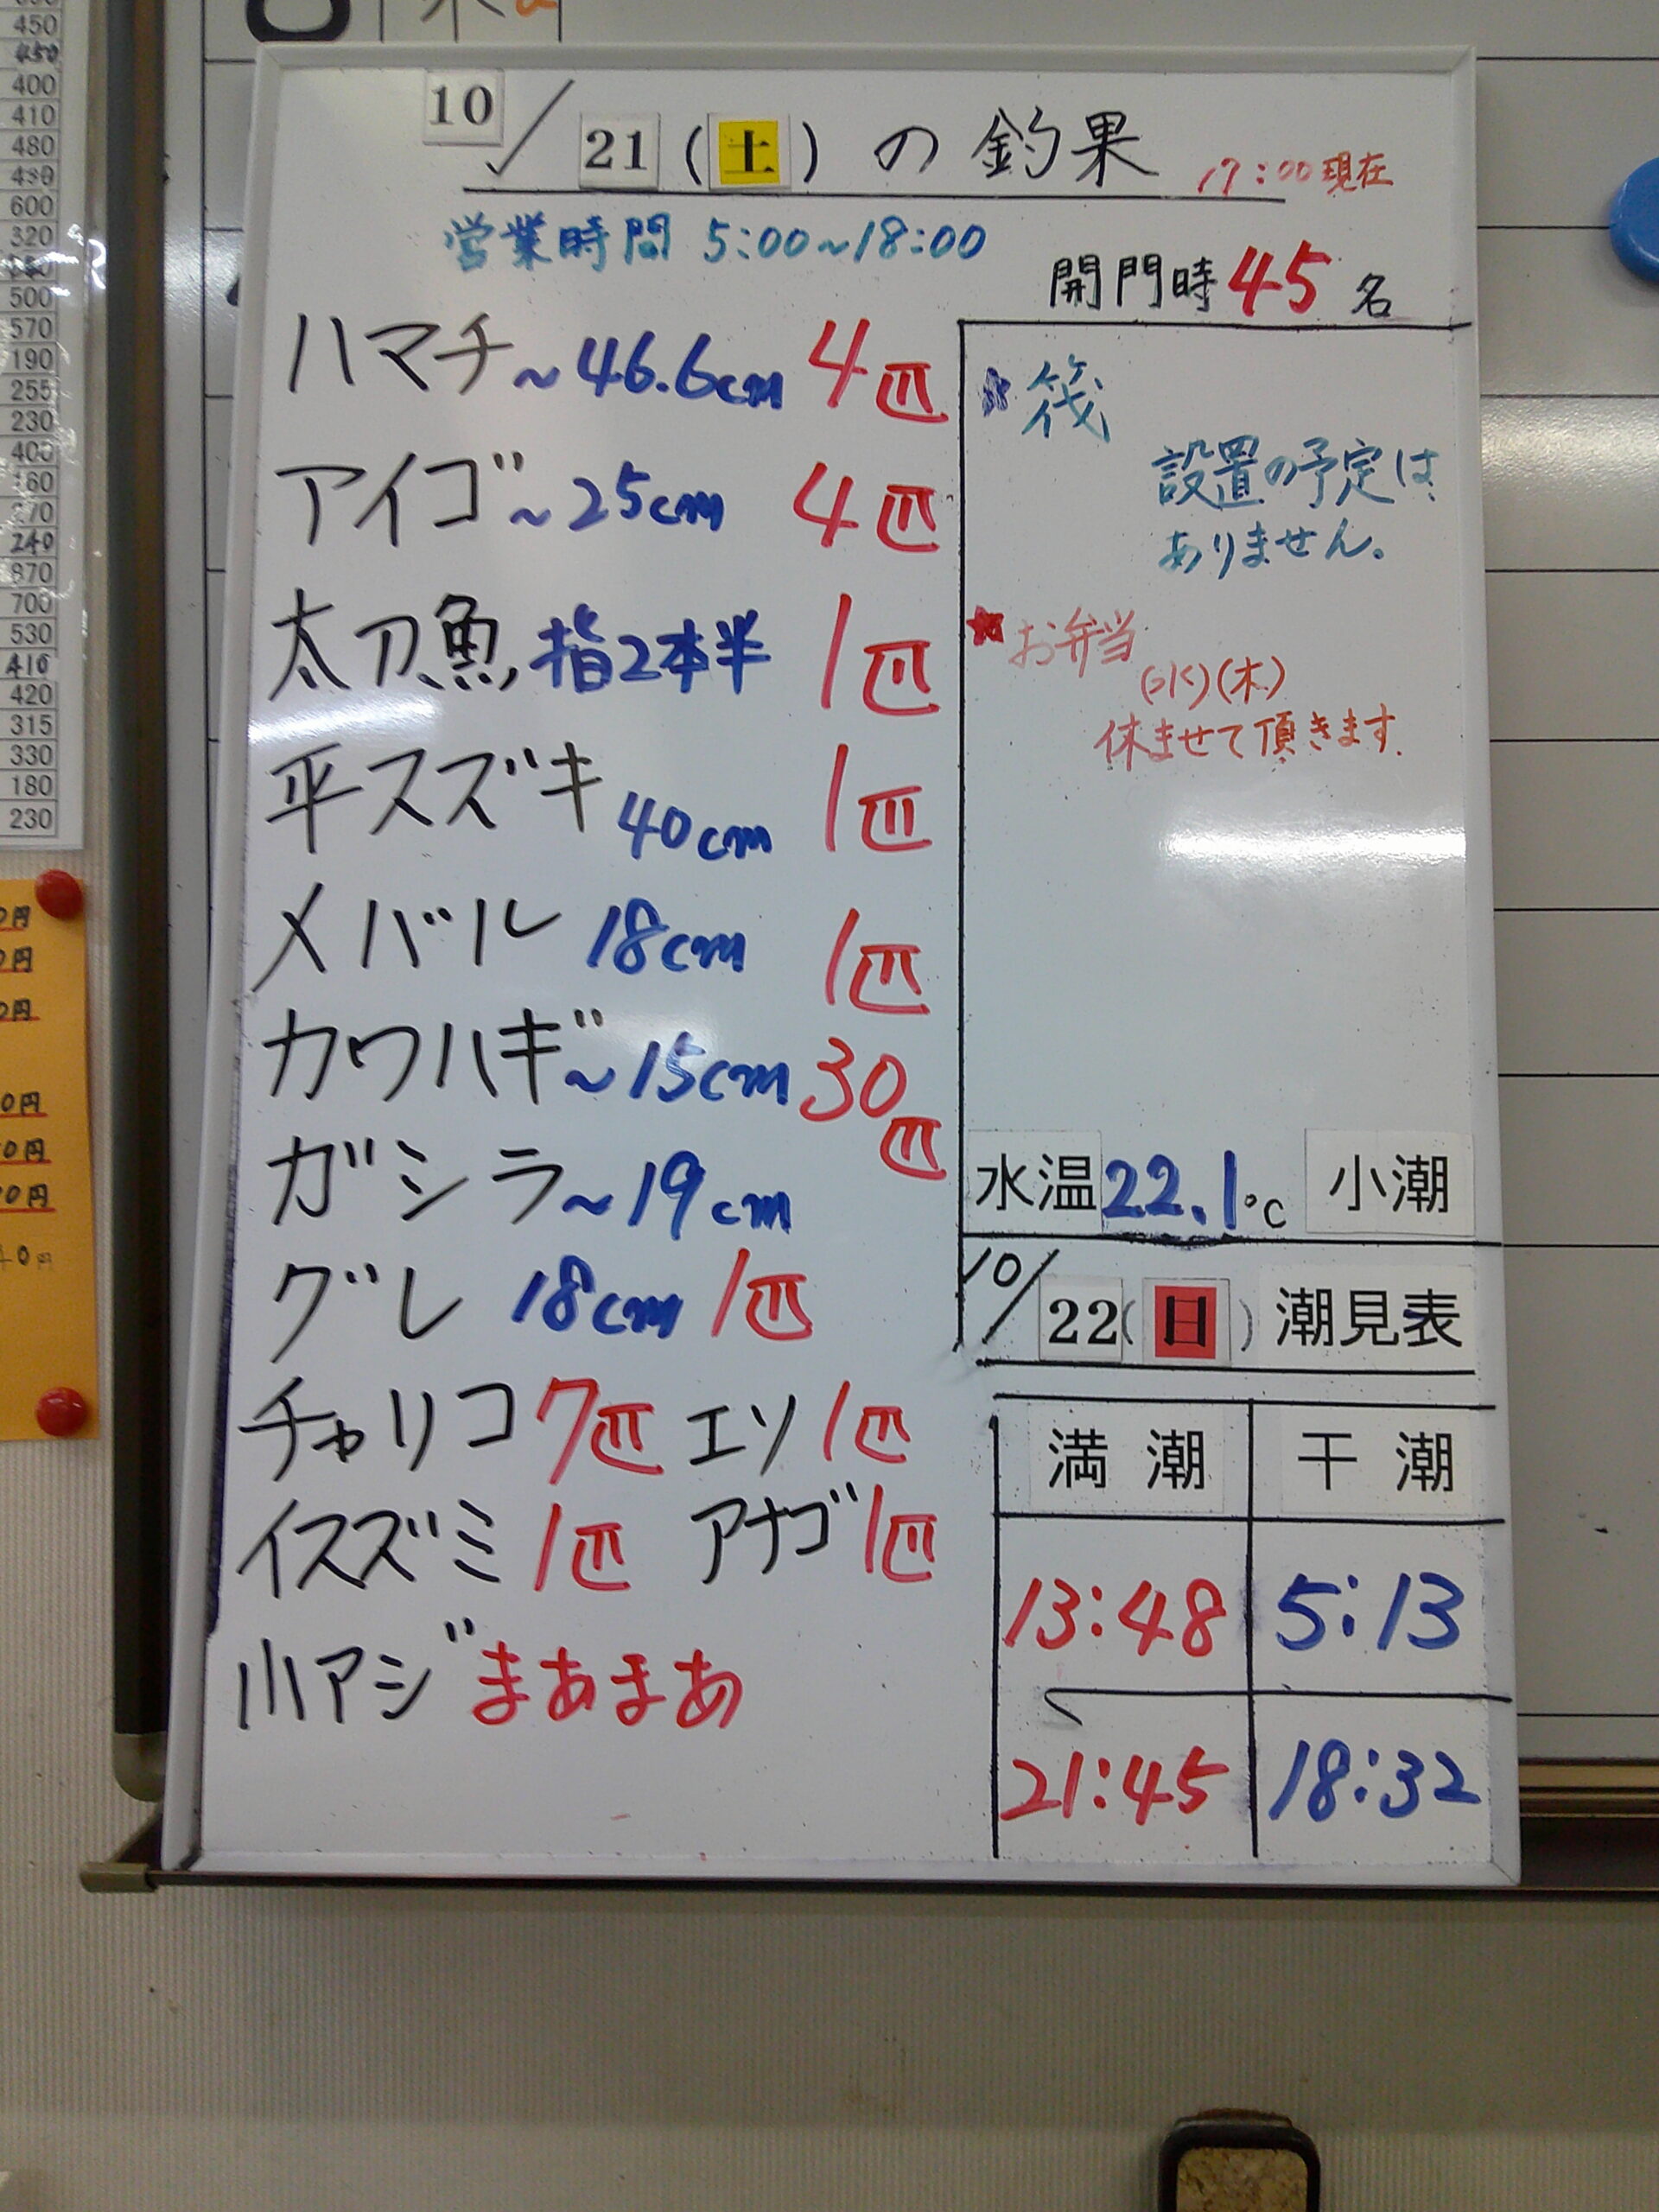 450
450
400
410
480
490
600
320
500
570
190
255
230
400
160
270
240
870
700
530
410
420
315
330
180
230
10/21(土)の釣果 17:00現在
営業時間 5:00~18:00
開門時45名
ハマチ~46.6cm 4匹
アイゴ~25cm 4匹
太刀魚 指2本半 1匹
平スズキ 40cm 1匹
メバル 18cm 1匹
カワハギ~15cm 30匹
ガシラ~19cm
グレ 18cm 1匹
チャリコ 7匹 エソ 1匹
イスズミ 1匹 アナゴ 1匹
小アジ まあまあ
★筏
設置の予定は
ありません。
★お弁当
(水)(木)
休ませて頂きます.
水温22.1℃ 小潮
10/22(日)潮見表
満潮 干潮
13:48 5:13
21:45 18:32